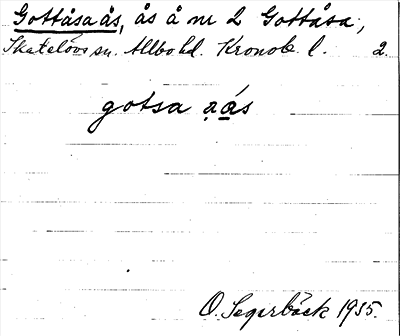 Gottåsaås, ås å nr 2 Gottåsa,
Skatelövs sn. Allbo hd. Kronob. l. 2.
gotsa ạa̲s
O. Segerbäck 1935.